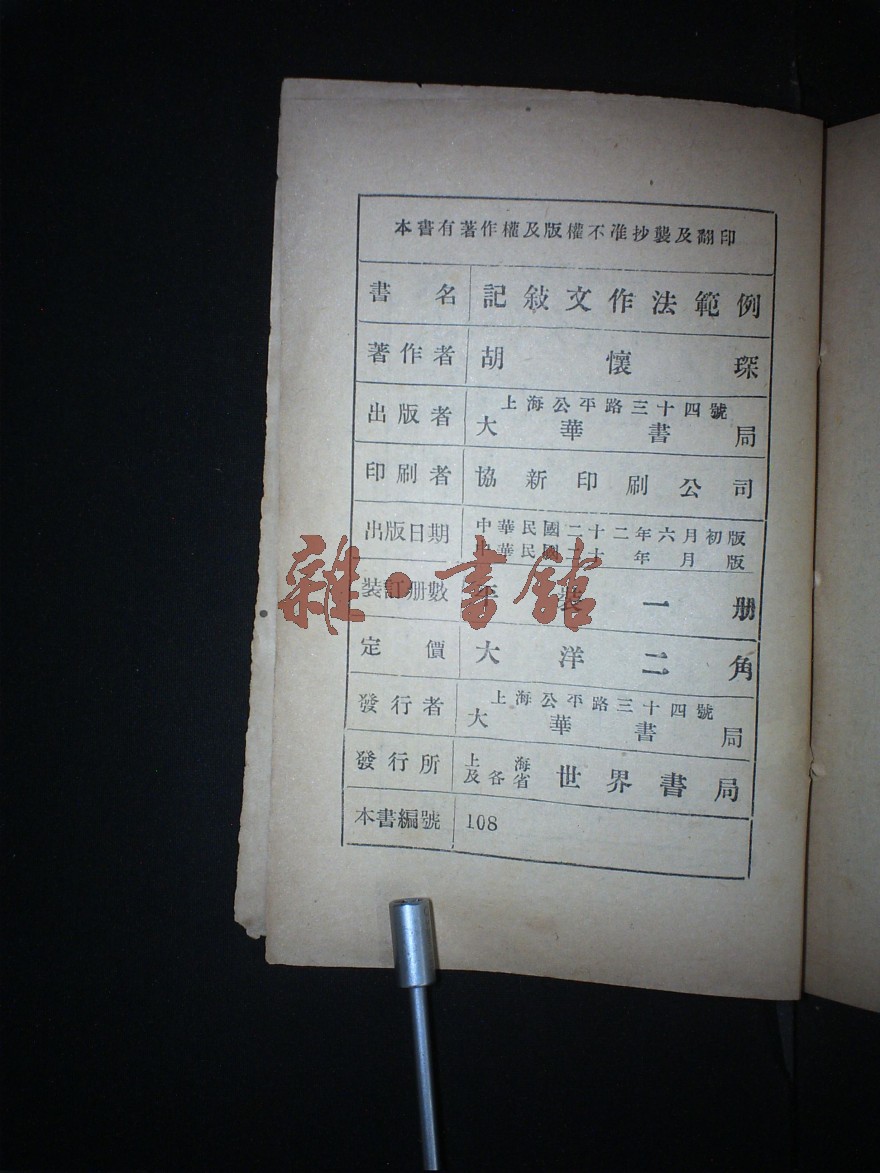 本書有著作權及版權不准抄襲及翻印
書名 記敍文作法範例
著作者 胡懷琛
出版者 上海公平路三十四號
大華書局
印刷者 協新印刷公司
出版日期 中華民國二十二年六月初版
中華民國二十 年 月 版
裝訂册數 平裝一册
定價 大洋二角
發行者 上海公平路三十四號
大華書局
發行所 上海及各省 世界書局
本書編號 108
雜·書館